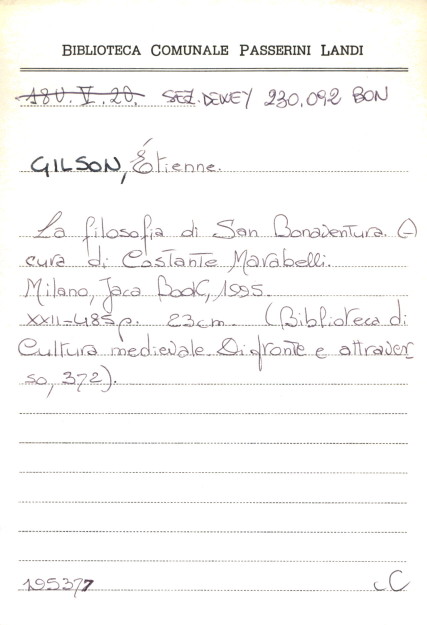 BIBLIOTECA COMUNALE PASSERINI LANDI
180. V. 20. SEZ. DEWEY 230.092 BON
GILSON, Étienne.
La filosofia di San Bonaventura. A
cura di Costante Marabelli.
Milano, Jaca Book, 1995.
XXII-483 p. 23cm. (Biblioteca di
Cultura medievale. Di fronte e attraver
so, 372).
195377 C